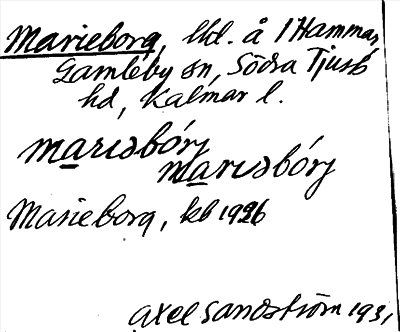 Marieborg, lhl. å 1 Hammar,
Gamleby sn, Södra Tjust
hd, Kalmar l.
marıəbórj
marıəbórj
Marieborg, kb 1926
Axel Sandström 1931